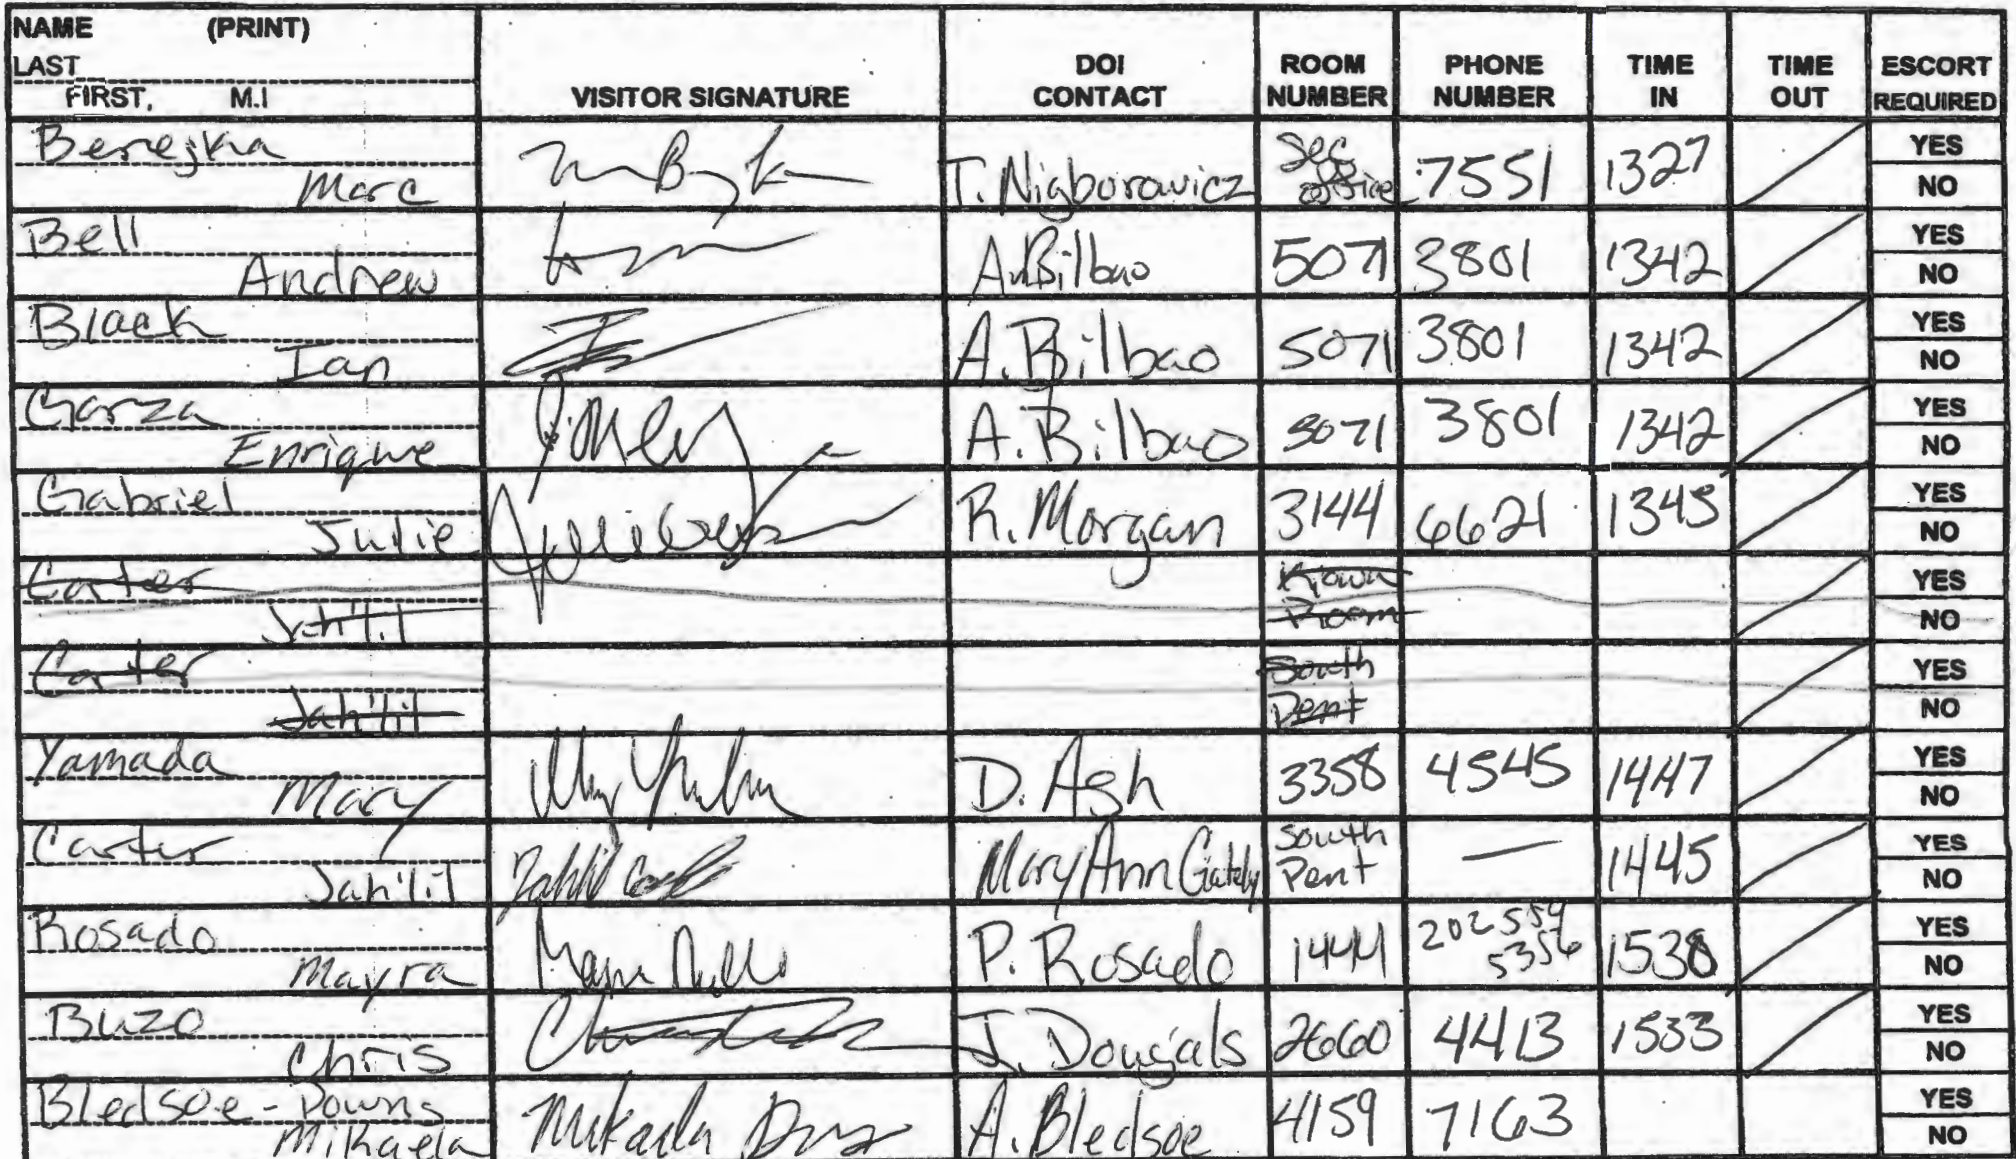 NAME (PRINT)
LAST
FIRST, M.I
VISITOR SIGNATURE
DOI CONTACT
ROOM NUMBER
PHONE NUMBER
TIME IN
TIME OUT
ESCORT REQUIRED
Berejka
Marc
T. Nigborowicz
Sec office
7551
1327
YES
NO
Bell
Andrew
A. Bilbao
5071
3801
1342
YES
NO
Black
Ian
A. Bilbao
5071
3801
1342
YES
NO
Garza
Enrique
A. Bilbao
5071
3801
1342
YES
NO
Gabriel
Julie
R. Morgan
3144
6621
1345
YES
NO
Carter
Jah'lil
Kiowa
Room
YES
NO
Carter
Jah'lil
South
Pent
YES
NO
Yamada
Mary
D. Ash
3358
4545
1447
YES
NO
Carter
Jah'lil
Mary Ann Gately
South
Pent
—
1445
YES
NO
Rosado
Mayra
P. Rosado
1444
202 559
5356
1538
YES
NO
Buzo
Chris
J. Dougals
2660
4413
1533
YES
NO
Bledsoe-Downs
Mikaela
Mikaela Downs
A. Bledsoe
4159
7163
YES
NO